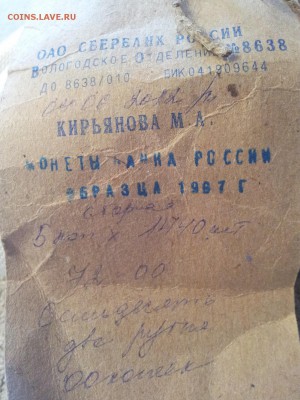 COINS.LAVE.RU
ОАО СБЕРБАНК РОССИИ
ВОЛОГОДСКОЕ ОТДЕЛЕНИЕ №8638
ДО 8638/010 БИК041909644
06 2012 г
КИРЬЯНОВА М.А.
МОНЕТЫ БАНКА РОССИИ
ОБРАЗЦА 1997 Г
5 коп х 1440 шт
72 00
два рубля
00 копеек